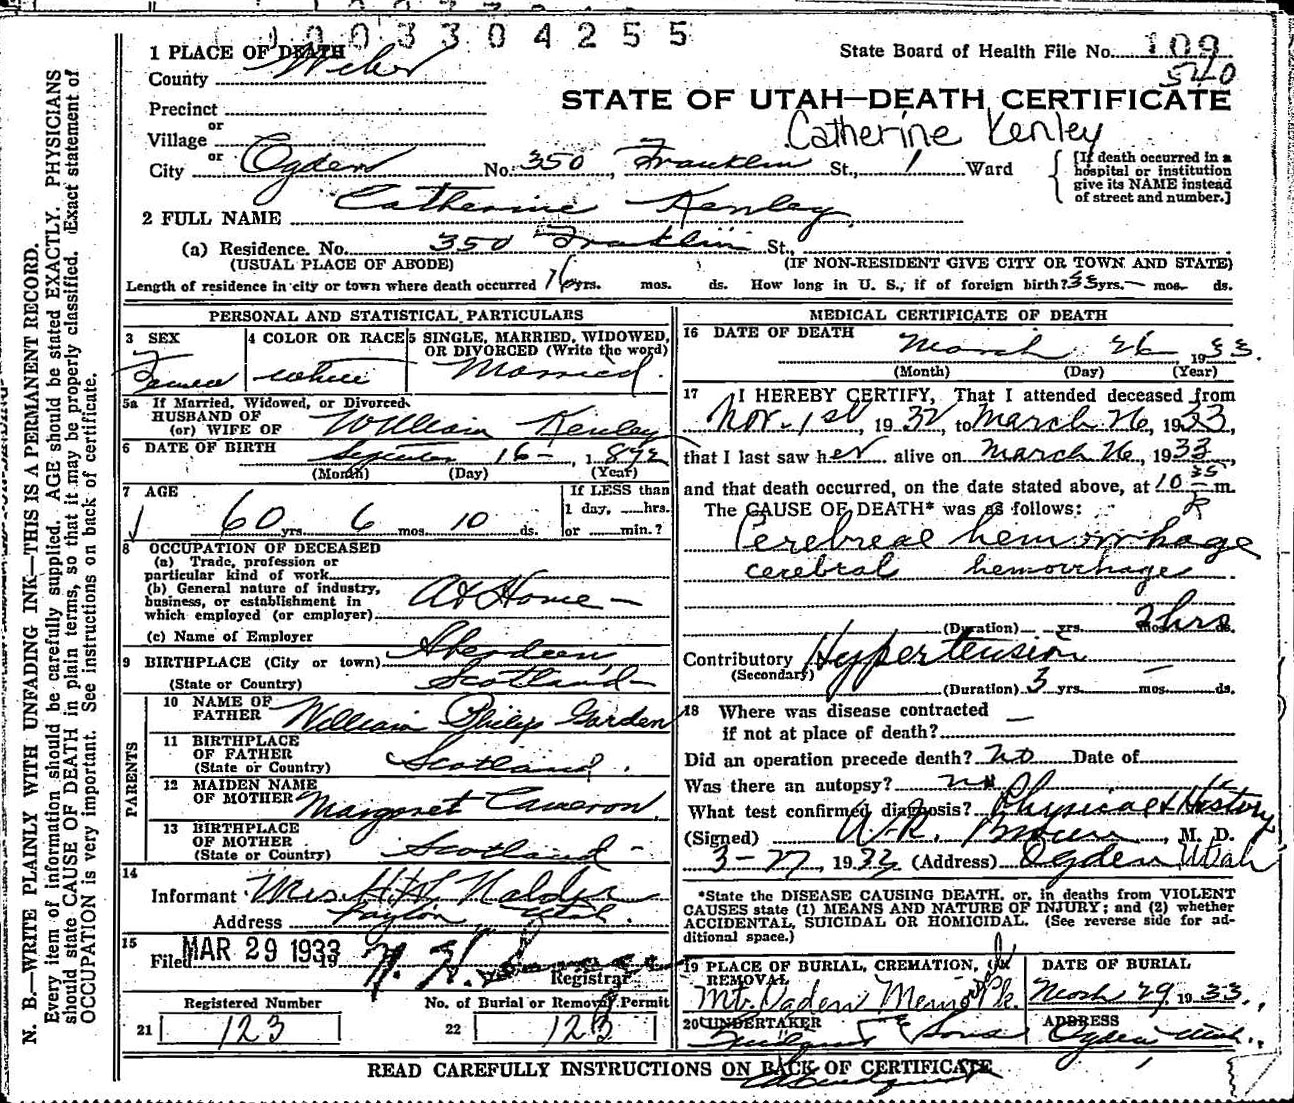 1003304255
1 PLACE OF DEATH
State Board of Health File No. 109
540
County Weber
STATE OF UTAH—DEATH CERTIFICATE
Precinct
or
Catherine Kenley
Village
or
City Ogden No. 350 Franklin St., 1 Ward
[If death occurred in a hospital or institution give its NAME instead of street and number.]
2 FULL NAME Catherine Kenley
(a) Residence. No. 350 Franklin St.,
(USUAL PLACE OF ABODE) (IF NON-RESIDENT GIVE CITY OR TOWN AND STATE)
Length of residence in city or town where death occurred 16 yrs. mos. ds. How long in U. S., if of foreign birth? 33 yrs. — mos. ds.
PERSONAL AND STATISTICAL PARTICULARS
3 SEX 4 COLOR OR RACE 5 SINGLE, MARRIED, WIDOWED,
OR DIVORCED (Write the word)
Female white Married
5a If Married, Widowed, or Divorced
HUSBAND OF
(or) WIFE OF William Kenley
6 DATE OF BIRTH September 16 — , 1872
(Month) (Day) (Year)
7 AGE If LESS than
1 day, hrs.
60 yrs. 6 mos. 10 ds. or min.?
8 OCCUPATION OF DECEASED
(a) Trade, profession or
particular kind of work
(b) General nature of industry,
business, or establishment in
which employed (or employer) At Home —
(c) Name of Employer
9 BIRTHPLACE (City or town) Aberdeen
(State or Country) Scotland —
PARENTS
10 NAME OF
FATHER William Philip Garden
11 BIRTHPLACE
OF FATHER
(State or Country) Scotland.
12 MAIDEN NAME
OF MOTHER Margaret Cameron
13 BIRTHPLACE
OF MOTHER
(State or Country) Scotland —
14
Informant Mrs. H. W.
Address Payson Utah.
15
Filed MAR 29 1933 19
Registrar
Registered Number No. of Burial or Removal Permit
21 123 22 123
MEDICAL CERTIFICATE OF DEATH
16 DATE OF DEATH March 26 1933.
(Month) (Day) (Year)
17 I HEREBY CERTIFY, That I attended deceased from
Nov. 1st, 1932, to March 26, 1933,
that I last saw her alive on March 26, 1933,
and that death occurred, on the date stated above, at 10 35 m.
P
The CAUSE OF DEATH* was as follows:
Cerebreal hemorrhage
cerebral hemorrhage
(Duration) yrs. mos. 2 hrs ds.
Contributory Hypertension
(Secondary)
(Duration) 3 yrs. mos. — ds.
18 Where was disease contracted
if not at place of death? —
Did an operation precede death? no Date of
Was there an autopsy? no
What test confirmed diagnosis? Physical & History
(Signed) W. R. Brown, M. D.
3-27, 1933 (Address) Ogden Utah
*State the DISEASE CAUSING DEATH, or, in deaths from VIOLENT
CAUSES state (1) MEANS AND NATURE OF INJURY; and (2) whether
ACCIDENTAL, SUICIDAL OR HOMICIDAL. (See reverse side for ad-
ditional space.)
19 PLACE OF BURIAL, CREMATION, OR
REMOVAL
DATE OF BURIAL
Mt. Ogden Memo. Pk. March 29, 1933.
20 UNDERTAKER ADDRESS
& Sons Ogden Utah.
READ CAREFULLY INSTRUCTIONS ON BACK OF CERTIFICATE
N. B.—WRITE PLAINLY WITH UNFADING INK—THIS IS A PERMANENT RECORD.
Every item of information should be carefully supplied. AGE should be stated EXACTLY. PHYSICIANS
should state CAUSE OF DEATH in plain terms, so that it may be properly classified. Exact statement of
OCCUPATION is very important. See instructions on back of certificate.